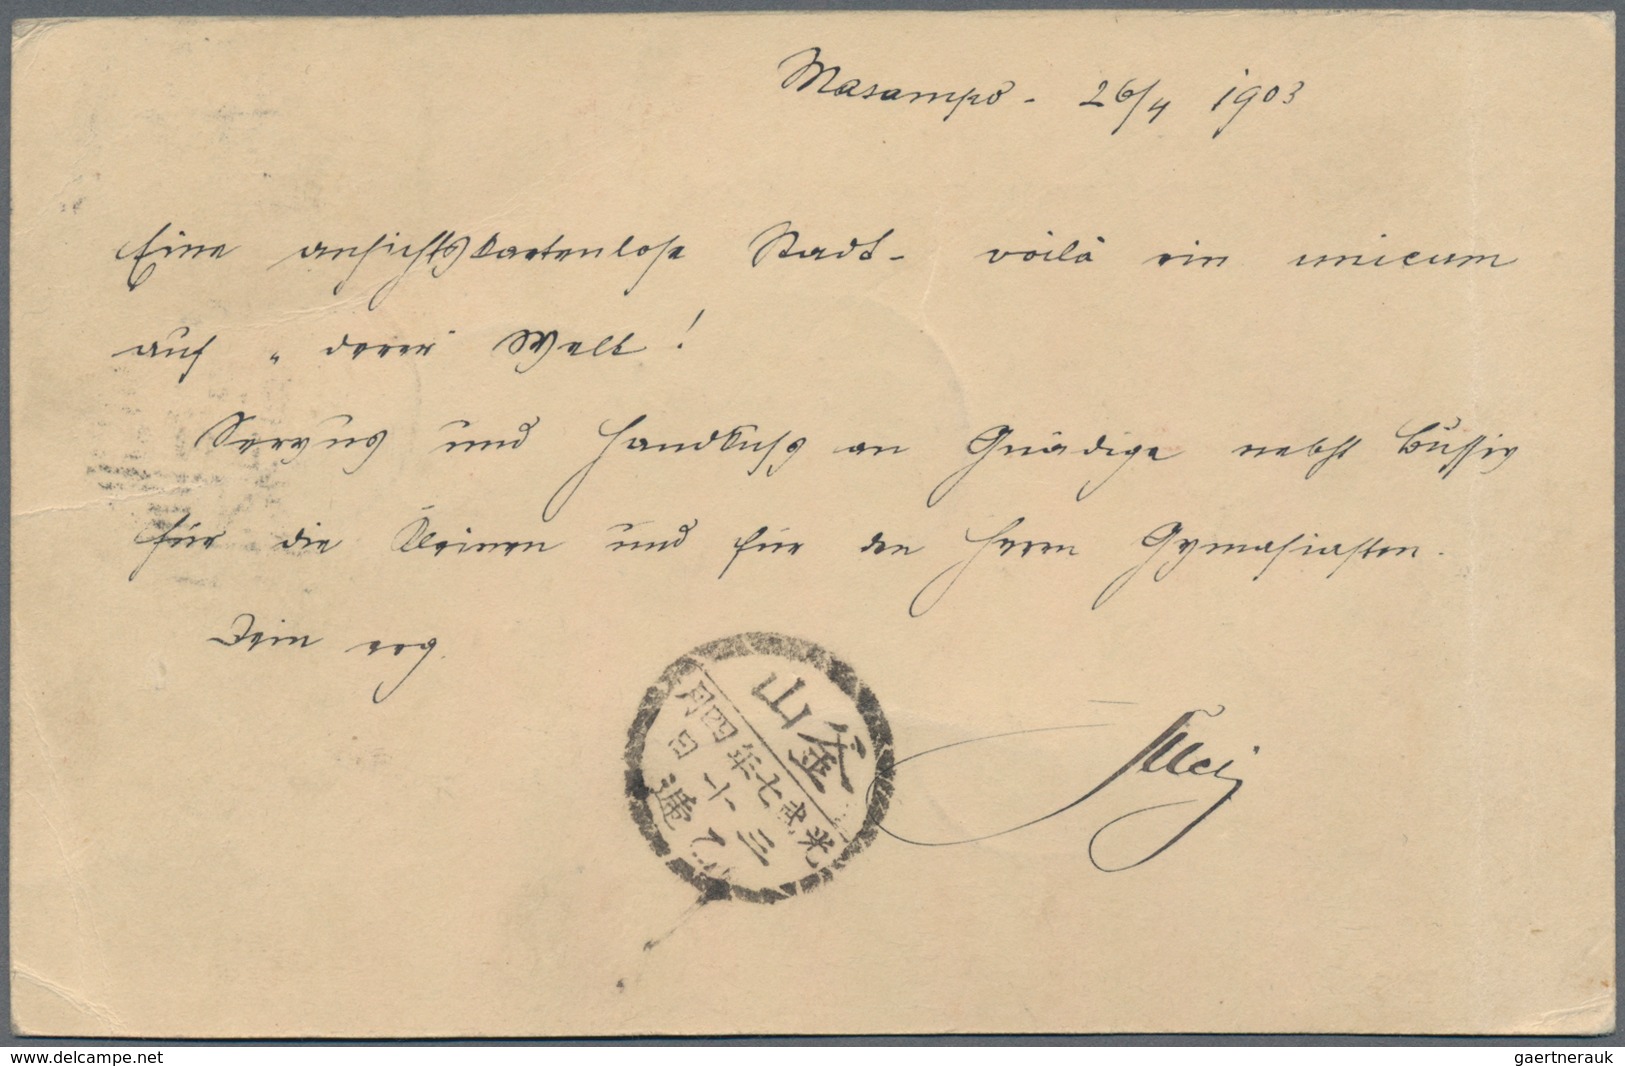 Masampo - 26/4 1903
Eine ansichtskartenlose Stadt - voilà ein unicum
auf " derer Welt !
Servus und Handkuss an Gnädige nebst Bussis
für die Kleinen und für den Herrn Gymasiasten.
Dein erg.
釜山
光武七年四月
三十日
乙 遞
delcampe.net
gaertnerauk